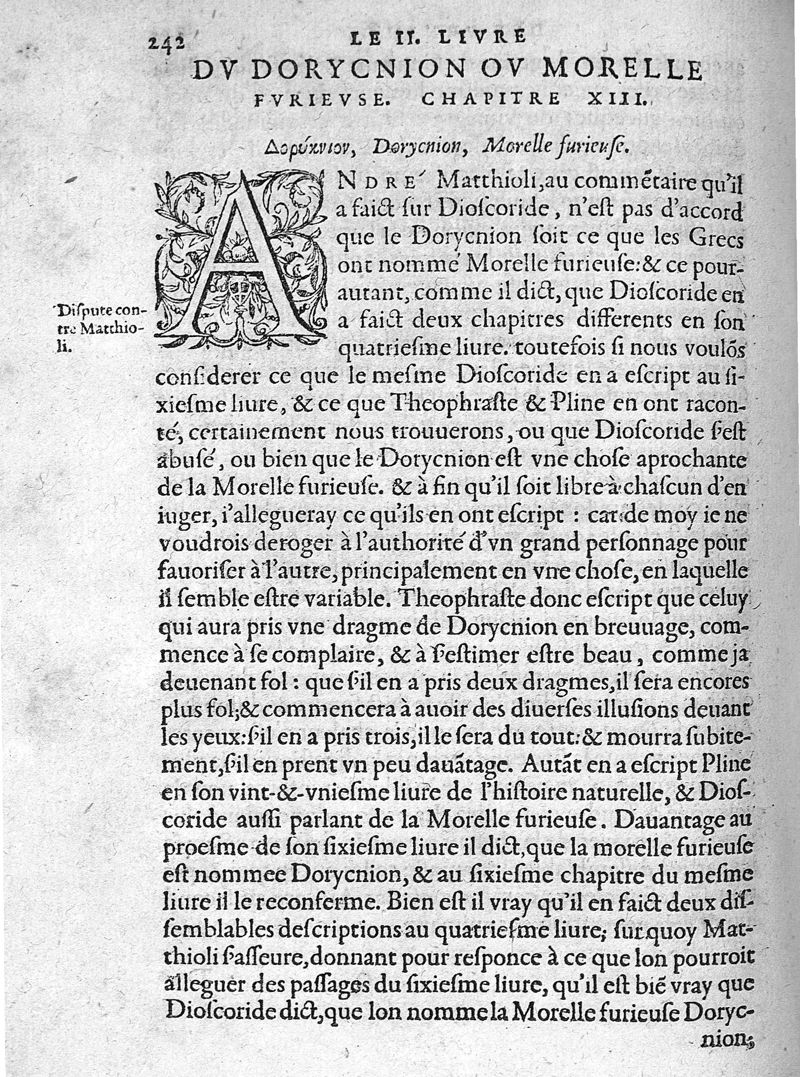 242
LE II. LIVRE
DV DORYCNION OV MORELLE
FVRIEVSE. CHAPITRE XIII.
Δορύκνιον, Dorycnion, Morelle furieuſe.
ANDRÉ Matthioli, au commẽtaire qu'il
a faict ſur Dioſcoride, n'eſt pas d'accord
que le Dorycnion ſoit ce que les Grecs
ont nommé Morelle furieuſe: & ce pour-
autant, comme il dict, que Dioſcoride en
a faict deux chapitres differents en ſon
quatrieſme liure. toutefois ſi nous voulõs
Diſpute con-
tre Matthio-
li.
conſiderer ce que le meſme Dioſcoride en a eſcript au ſi-
xieſme liure, & ce que Theophraſte & Pline en ont racon-
té, certainement nous trouuerons, ou que Dioſcoride ſ'eſt
abuſé, ou bien que le Dorycnion eſt vne choſe aprochante
de la Morelle furieuſe. & à fin qu'il ſoit libre à chaſcun d'en
iuger, i'allegueray ce qu'ils en ont eſcript : car de moy ie ne
voudrois deroger à l'authorité d'vn grand perſonnage pour
fauoriſer à l'autre, principalement en vne choſe, en laquelle
il ſemble eſtre variable. Theophraſte donc eſcript que celuy
qui aura pris vne dragme de Dorycnion en breuuage, com-
mence à ſe complaire, & à ſ'eſtimer eſtre beau, comme ja
deuenant fol : que ſ'il en a pris deux dragmes, il ſera encores
plus fol; & commencera à auoir des diuerſes illuſions deuant
les yeux: ſ'il en a pris trois, il le ſera du tout: & mourra ſubite-
ment, ſ'il en prent vn peu dauãtage. Autãt en a eſcript Pline
en ſon vint-&-vnieſme liure de l'hiſtoire naturelle, & Dioſ-
coride auſſi parlant de la Morelle furieuſe. Dauantage au
proeſme de ſon ſixieſme liure il dict, que la morelle furieuſe
eſt nommee Dorycnion, & au ſixieſme chapitre du meſme
liure il le reconferme. Bien eſt il vray qu'il en faict deux diſ-
ſemblables deſcriptions au quatrieſme liure; ſur quoy Mat-
thioli ſ'aſſeure, donnant pour reſponce à ce que lon pourroit
alleguer des paſſages du ſixieſme liure, qu'il eſt biẽ vray que
Dioſcoride dict, que lon nomme la Morelle furieuſe Doryc-
nion;